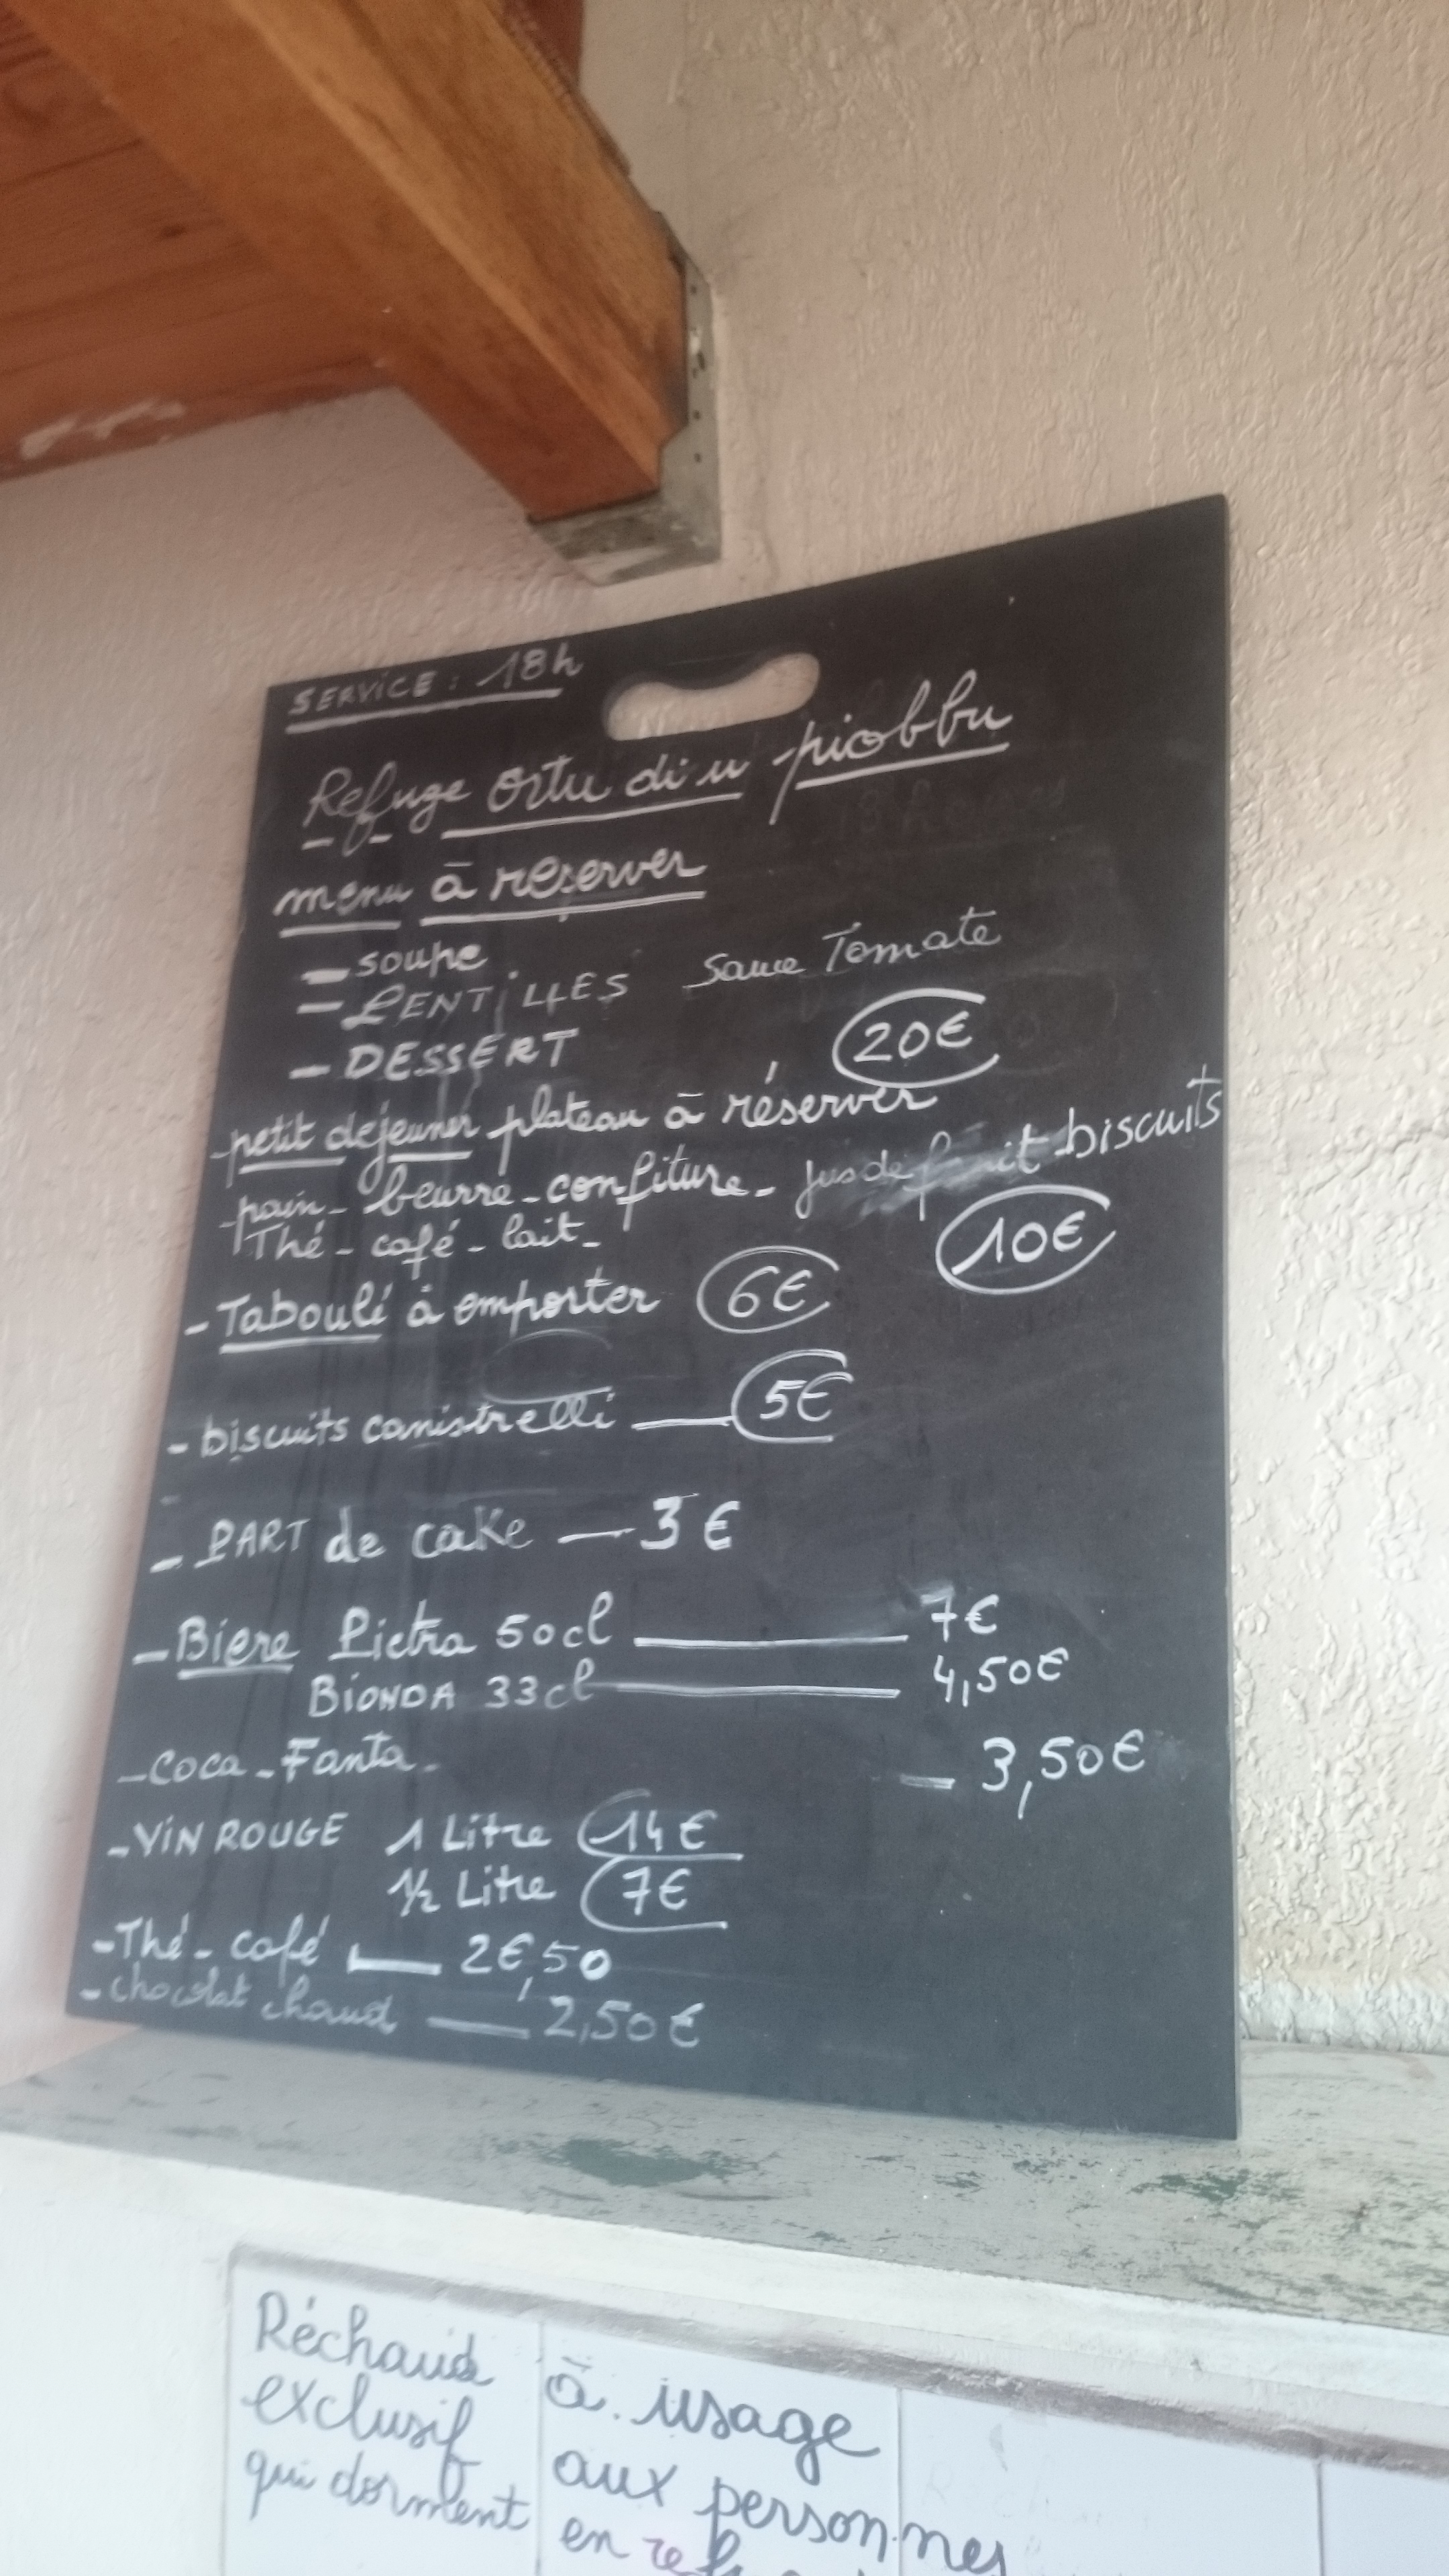 SERVICE : 18h
Refuge ortu di u piobbu
menu à réserver
- soupe
- LENTILLES Sauce Tomate
- DESSERT 20€
- petit dejeuner plateau à réserver
- pain - beurre - confiture - jus de fruit biscuits
Thé - café - lait - 10€
- Taboulé à emporter 6€
- biscuits canistrelli — 5€
- PART de cake — 3€
- Biere Pietra 50cl — 7€
BIONDA 33cl — 4,50€
- coca - Fanta - — 3,50€
- VIN ROUGE 1 Litre 14€
1/2 Litre 7€
- Thé - café — 2€,50
- chocolat chaud — 2,50€
Réchaud à usage
exclusif aux personnes
qui dorment en